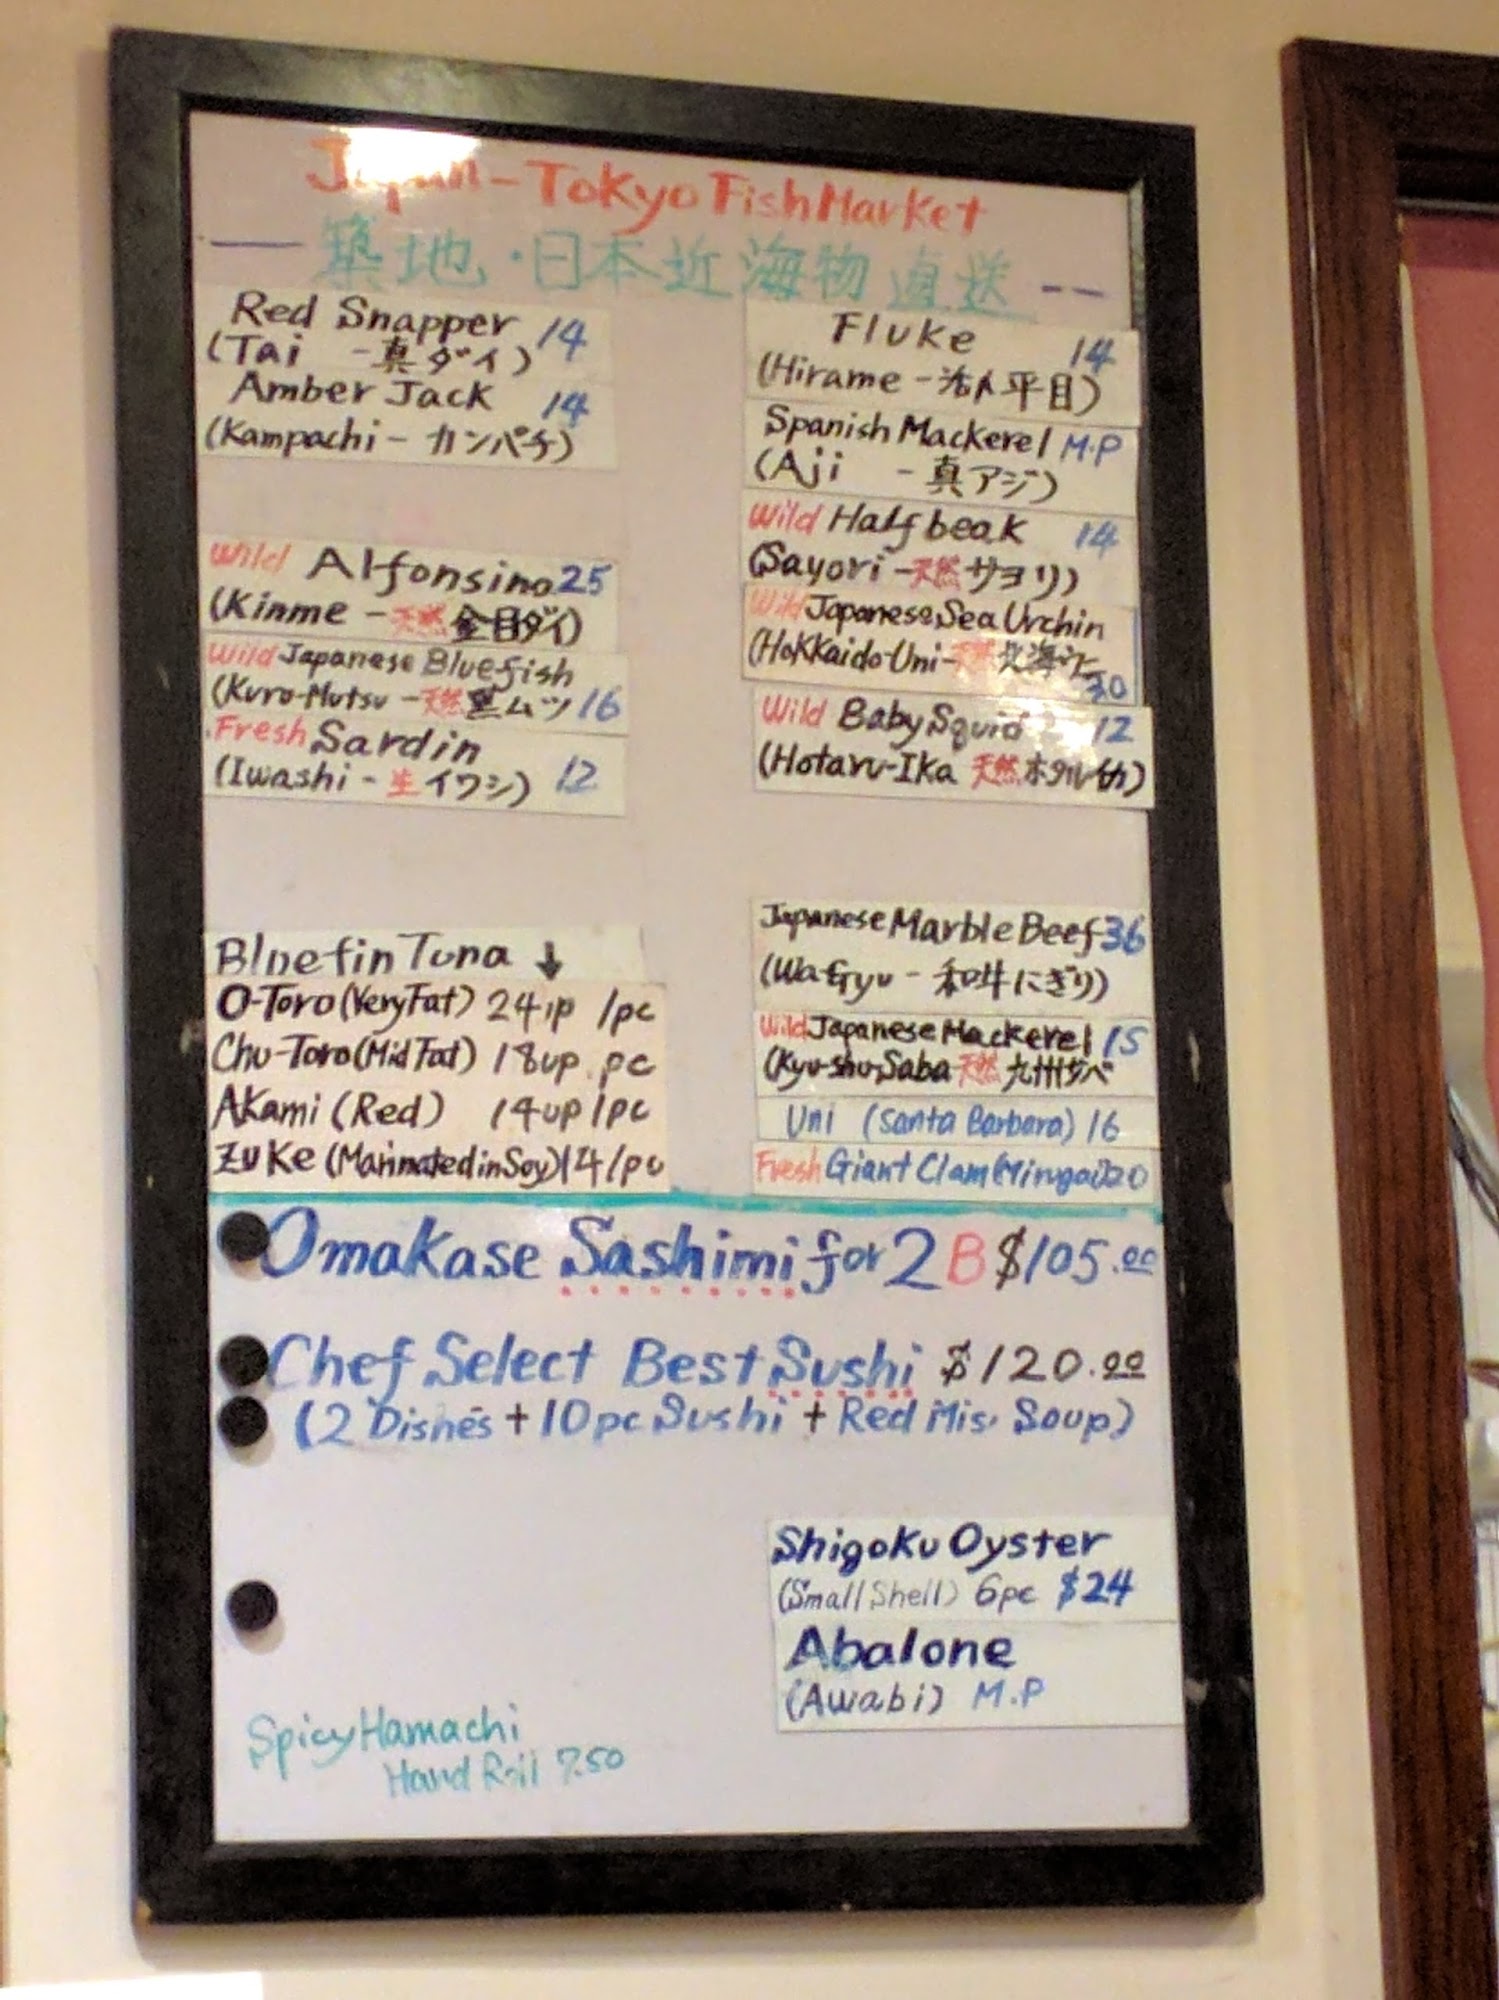 Japan-Tokyo Fish Market
築地・日本近海物直送
Red Snapper 14
(Tai - 真ダイ)
Amber Jack 14
(Kampachi - カンパチ)
Wild Alfonsino 25
(Kinme - 天然 金目ダイ)
Wild Japanese Bluefish
(Kuro-Mutsu - 天然 黒ムツ 16
Fresh Sardin
(Iwashi - 生イワシ) 12
Fluke 14
(Hirame - 活〆平目)
Spanish Mackerel M.P
(Aji - 真アジ)
Wild Halfbeak 14
(Sayori - 天然 サヨリ)
Wild Japanese Sea Urchin
(Hokkaido-Uni- 天然 北海
30
Wild Baby Squid 12
(Hotaru-Ika 天然 ホタル
Bluefin Tuna ↓
O-Toro (Very Fat) 24up /pc
Chu-Toro (Mid Fat) 18up pc
Akami (Red) 14up /pc
Zuke (Marinated in Soy) 14/pc
Japanese Marble Beef 36
(Wa Gyu - 和牛にぎり)
Wild Japanese Mackerel 15
(Kyu-shu-Saba 天然 九州サバ
Uni (Santa Barbara) 16
Fresh Giant Clam (Mirugai) 20
Omakase Sashimi for 2 B $105.00
Chef Select Best Sushi $120.00
(2 Dishes + 10pc Sushi + Red Miso Soup)
Shigoku Oyster
(Small Shell) 6pc $24
Abalone
(Awabi) M.P
Spicy Hamachi
Hand Roll 7.50